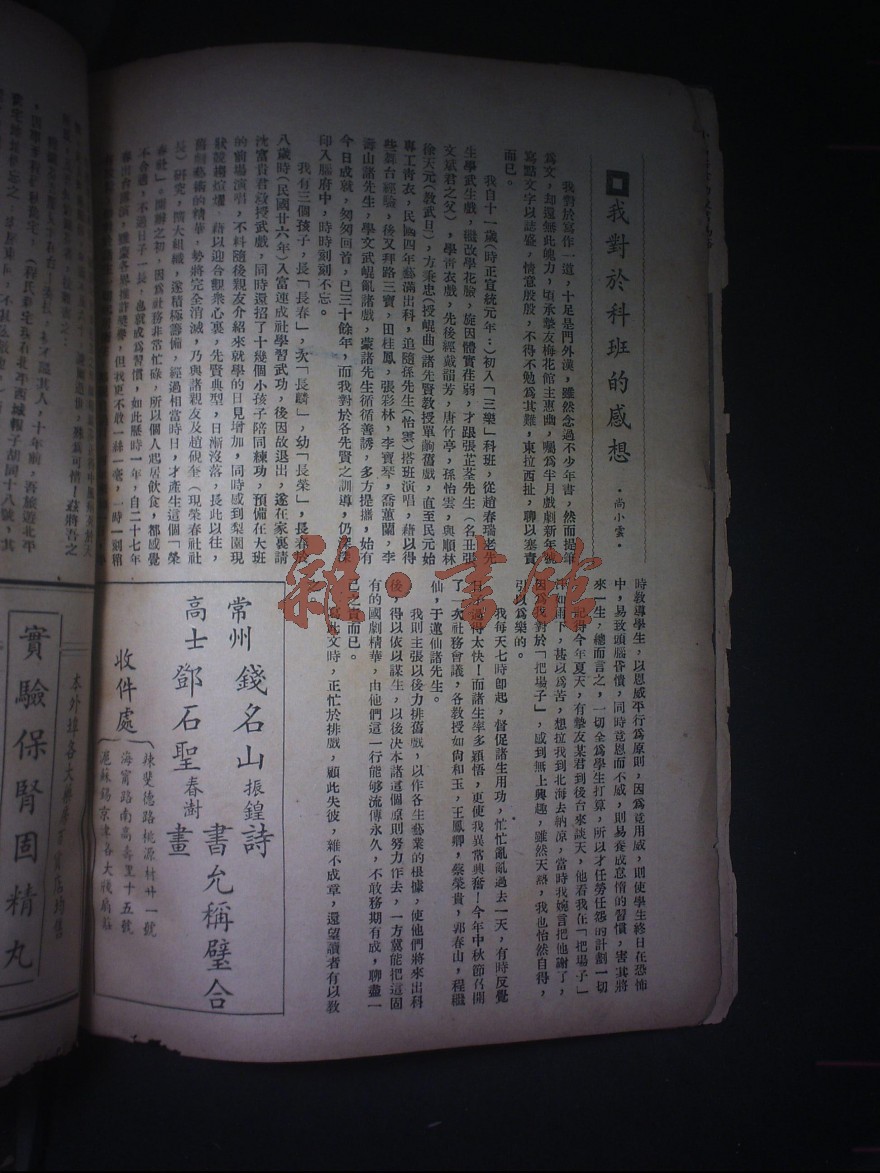 我對於科班的感想
·尚小雲·
我對於寫作一道,十足是門外漢,雖然念過不少年書,然而提筆
爲文,却還無此魄力,頃承摯友梅花館主惠函,囑爲半月戲劇新年號
寫點文字以誌盛,情意殷殷,不得不勉爲其難,東拉西扯,聊以塞責
而已。
我自十一歲(時正宣統元年:)初入「三樂」科班,從趙春瑞老先
生學武生戲,繼改學花臉,旋因體質荏弱,才跟張芷荃先生(名丑張
文斌君之父),學靑衣戲,先後經戴韻芳,唐竹亭,孫怡雲,與順林
徐天元(敎武旦),方秉忠(授崐曲)諸先賢敎授單齣舊戲,直至民元始
專工靑衣,民國四年藝滿出科,追隨孫先生(怡雲)搭班演唱,藉以得
些舞台經驗,後又拜路三寶,田桂鳳,張彩林,李寶琴,喬蕙蘭,李
壽山諸先生,學文武崐亂諸戲,蒙諸先生循循善誘,多方提攜,始有
今日成就,匆匆回首,已三十餘年,而我對於各先賢之訓導,仍深深
印入腦府中,時時刻刻不忘。
我有三個孩子,長「長春」,次「長麟」,幼「長榮」,長春於
八歲時(民國廿六年)入富連成社學習武功,後因故退出,遂在家裏請
沈富貴君敎授武戲,同時還招了十幾個小孩子陪同練功,預備在大班
的前場演唱,不料隨後親友介紹來就學的日見增加,同時感到梨園現
狀競趨煊爛,藉以迎合觀衆心裏,先賢典型,日漸沒落,長此以往,
舊劇藝術的精華,勢將完全消滅,乃與諸親友及趙硯奎(現榮春社社
長)硏究,擴大組織,遂積極籌備,經過相當時日,才產生這個「榮
春社」。開辦之初,因爲社務非常忙碌,所以個人起居飮食,都感覺
不合適,不過日子一長,也就成爲習慣,如此歷時一年,自二十七年
春出台露演,雖蒙各界推許獎譽,但我更不敢一絲一毫,一時一刻稍
時敎導學生,以恩威平行爲原則,因爲竟用威,則使學生終日在恐怖
中,易致頭腦昏憒,同時竟恩而不威,則易養成怠惰的習慣,害其將
來一生,總而言之,一切全爲學生打算,所以才任勞任怨的計劃一切
記得今年夏天,有摯友某君到後台來談天,他看我在「把場子」
汗如雨下,甚以爲苦,想拉我到北海去納涼,當時我婉言把他謝了,
因爲我對於「把場子」,感到無上興趣,雖然天熱,我也怡然自得,
引以爲樂的。
我每天七時卽起,督促諸生用功,忙忙亂亂過去一天,有時反覺
日過得太快!而諸生率多穎悟,更使我異常興奮!今年中秋節召開
了一次社務會議,各敎授如尙和玉,王鳳卿,蔡榮貴,郭春山,程繼
仙,于連仙諸先生。
我則主張以後力排舊戲,以作各生藝業的根據,使他們將來出科
後,得以依以謀生,以後決本諸這個原則努力作去,一方冀能把這固
有的國劇精華,由他們這一行能够流傳永久,不敢務期有成,聊盡一
己之責而已。
寫此文時,正忙於排戲,顧此失彼,雜不成章,還望讀者有以敎
常州 錢名山 振鍠 詩
高士 鄧石聖 春澍 畫
書允稱璧合
收件處
辣斐德路桃源村廿一號
海甯路南高壽里十五號
滬蘇錫京津各大牋扇莊
實驗保腎固精丸
雜·書館